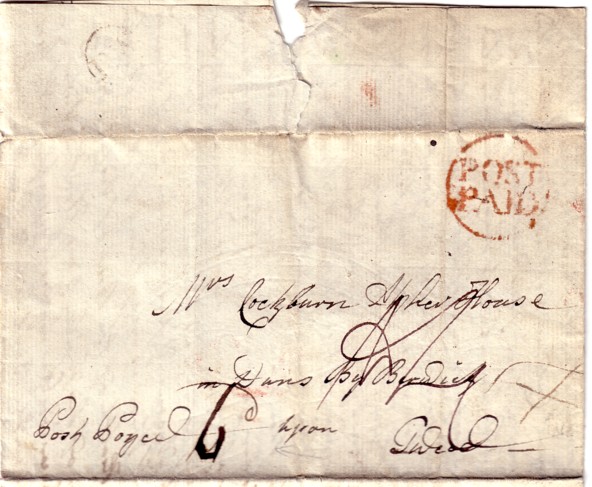 POST
PAID
Mrs Cockburn House
in Duns By Berwick
Post Payed 6d upon
Tweed